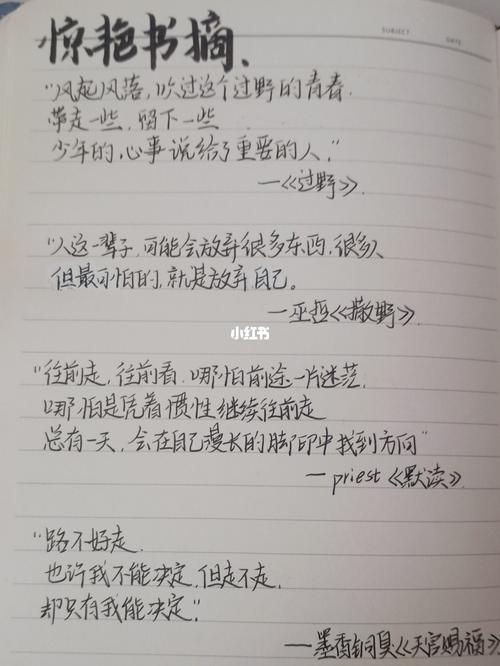 惊艳书摘、
SUBJECT
DATE
“风起风落,吹过这个过野的青春.
带走一些,留下一些
少年的,心事说给了重要的人,”
—《过野》.
“人这一辈子,可能会放弃很多东西,很多人
但最可怕的,就是放弃自己。
—巫哲《撒野》.
小红书
“往前走,往前看.哪怕前途一片迷茫.
哪怕是凭着惯性继续往前走
总有一天,会在自己漫长的脚印中找到方向”
—priest《默读》.
“路不好走.
也许我不能决定.但走不走.
却只有我能决定.”
—墨香铜臭《天官赐福》